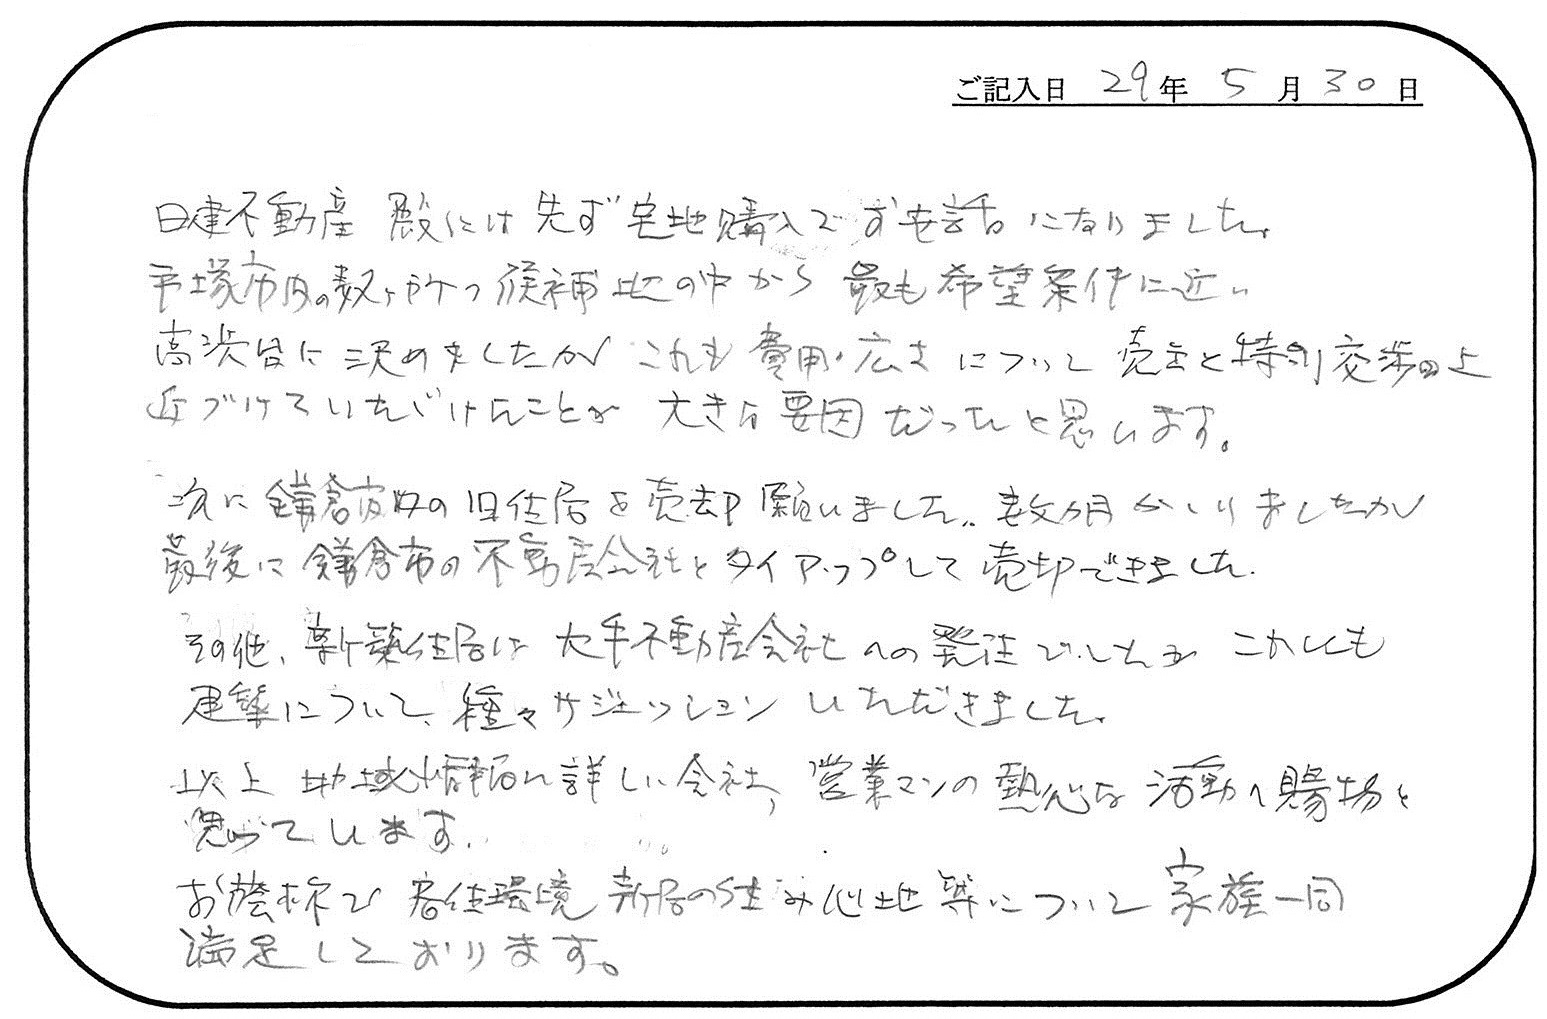 ご記入日 29年 5月 30日
日建不動産 殿には 先ず 宅地購入で お世話になりました。
平塚市内の数ヶ所の候補地の中から 最も希望条件に近い
高浜台に決めましたが これも費用・広さについて 売主と特別交渉の上
近づけていただけたことが 大きな要因だったと思います。
次に 鎌倉市内の旧住居を売却願いました。数カ月かかりましたが
最後に鎌倉市の不動産会社とタイアップして売却できました。
その他、新築住居は 大手不動産会社への発注でしたが これにも
建築について、種々サジェッションいただきました。
以上 地域情報に詳しい会社、営業マンの熱心な活動の賜物と
思っています。
お蔭様で 居住環境 新居の住み心地等について 家族一同
満足しております。